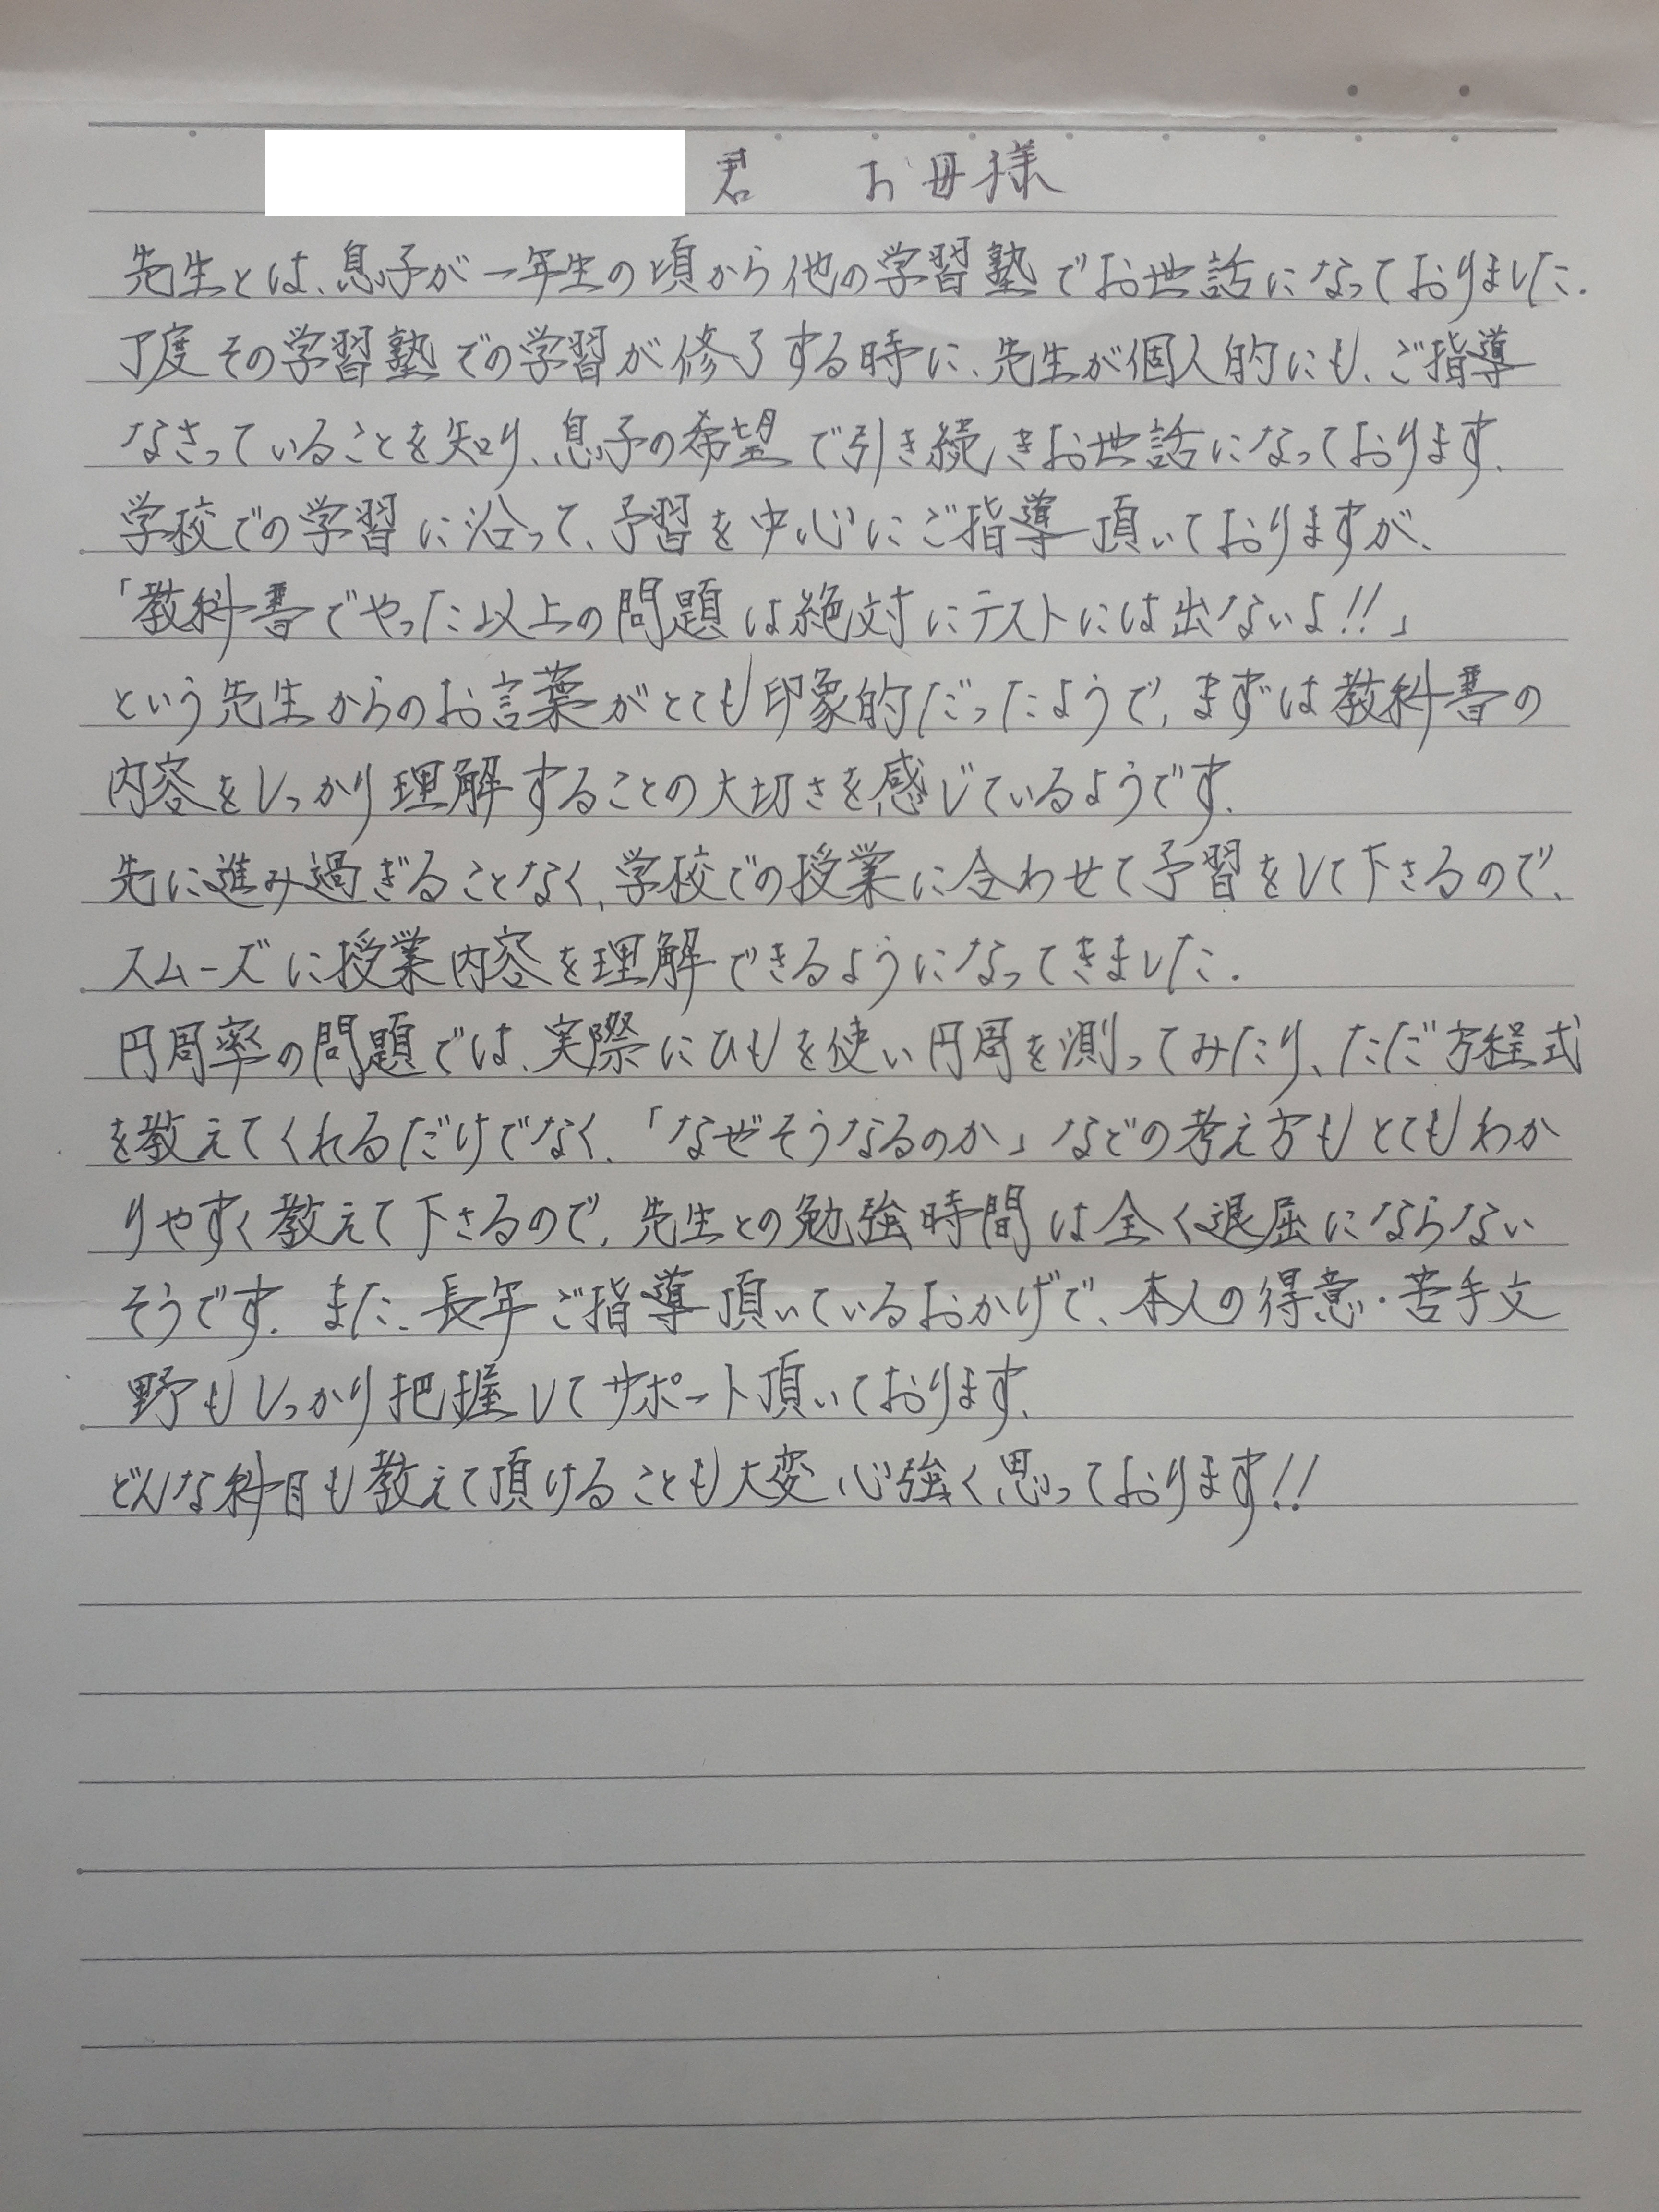 君　お母様
先生とは、息子が一年生の頃から他の学習塾でお世話になっておりました.
丁度その学習塾での学習が修了する時に、先生が個人的にも、ご指導
なさっていることを知り、息子の希望で引き続きお世話になっております.
学校での学習に沿って、予習を中心にご指導頂いておりますが、
「教科書でやった以上の問題は絶対にテストには出ないよ!!」
という先生からのお言葉がとても印象的だったようで、まずは教科書の
内容をしっかり理解することの大切さを感じているようです.
先に進み過ぎることなく、学校での授業に合わせて予習をして下さるので、
スムーズに授業内容を理解できるようになってきました.
円周率の問題では、実際にひもを使い円周を測ってみたり、ただ方程式
を教えてくれるだけでなく、「なぜそうなるのか」などの考え方もとてもわか
りやすく教えて下さるので、先生との勉強時間は全く退屈にならない
そうです. また、長年ご指導頂いているおかげで、本人の得意・苦手文
野もしっかり把握してサポート頂いております.
どんな科目も教えて頂けることも大変心強く思っております!!